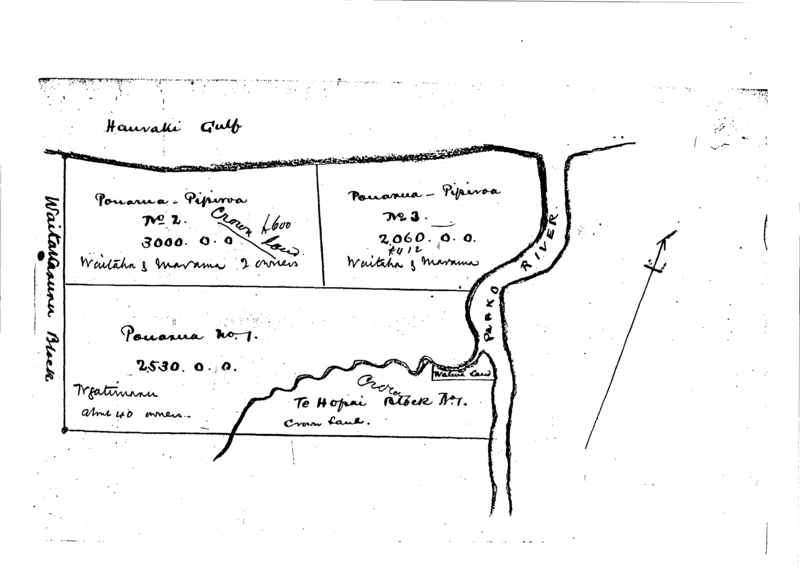 Hauraki Gulf
Pouarua - Pipiroa
No 2.
Crown £600
Land
3000. 0. 0.
Waitaha & Marama 2 owners
Pouarua - Pipiroa
No 3.
2,060. 0. 0.
£412
Waitaha & Marama
PIAKO RIVER
Waitakaruru Block
Pouarua No. 1.
2,530. 0. 0.
Ngatimaru
abt 40 owners.
Native Land
Crown
Te Hopai Block No. 1.
Crown Land.